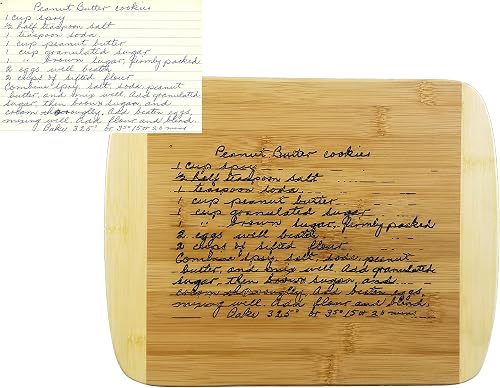 Peanut Butter cookies
1 cup spry
1/2 half teaspoon salt
1 teaspoon soda.
1 cup peanut butter
1 cup granulated sugar
1 " brown sugar, firmly packed
2 eggs well beaten
2 cups of sifted flour
Combine spry, salt, soda, peanut
butter, and mix well. Add granulated
sugar, then brown sugar, and
cream thoroughly. Add beaten eggs,
mixing well. Add flour and blend.
Bake 325° or 35° 15 or 20 mins
Peanut Butter cookies
1 cup spry
1/2 half teaspoon salt
1 teaspoon soda.
1 cup peanut butter
1 cup granulated sugar
1 " brown sugar, firmly packed
2 eggs well beaten
2 cups of sifted flour
Combine spry, salt, soda, peanut
butter, and mix well. Add granulated
sugar, then brown sugar, and
cream thoroughly. Add beaten eggs,
mixing well. Add flour and blend.
Bake 325° or 35° 15 or 20 mins